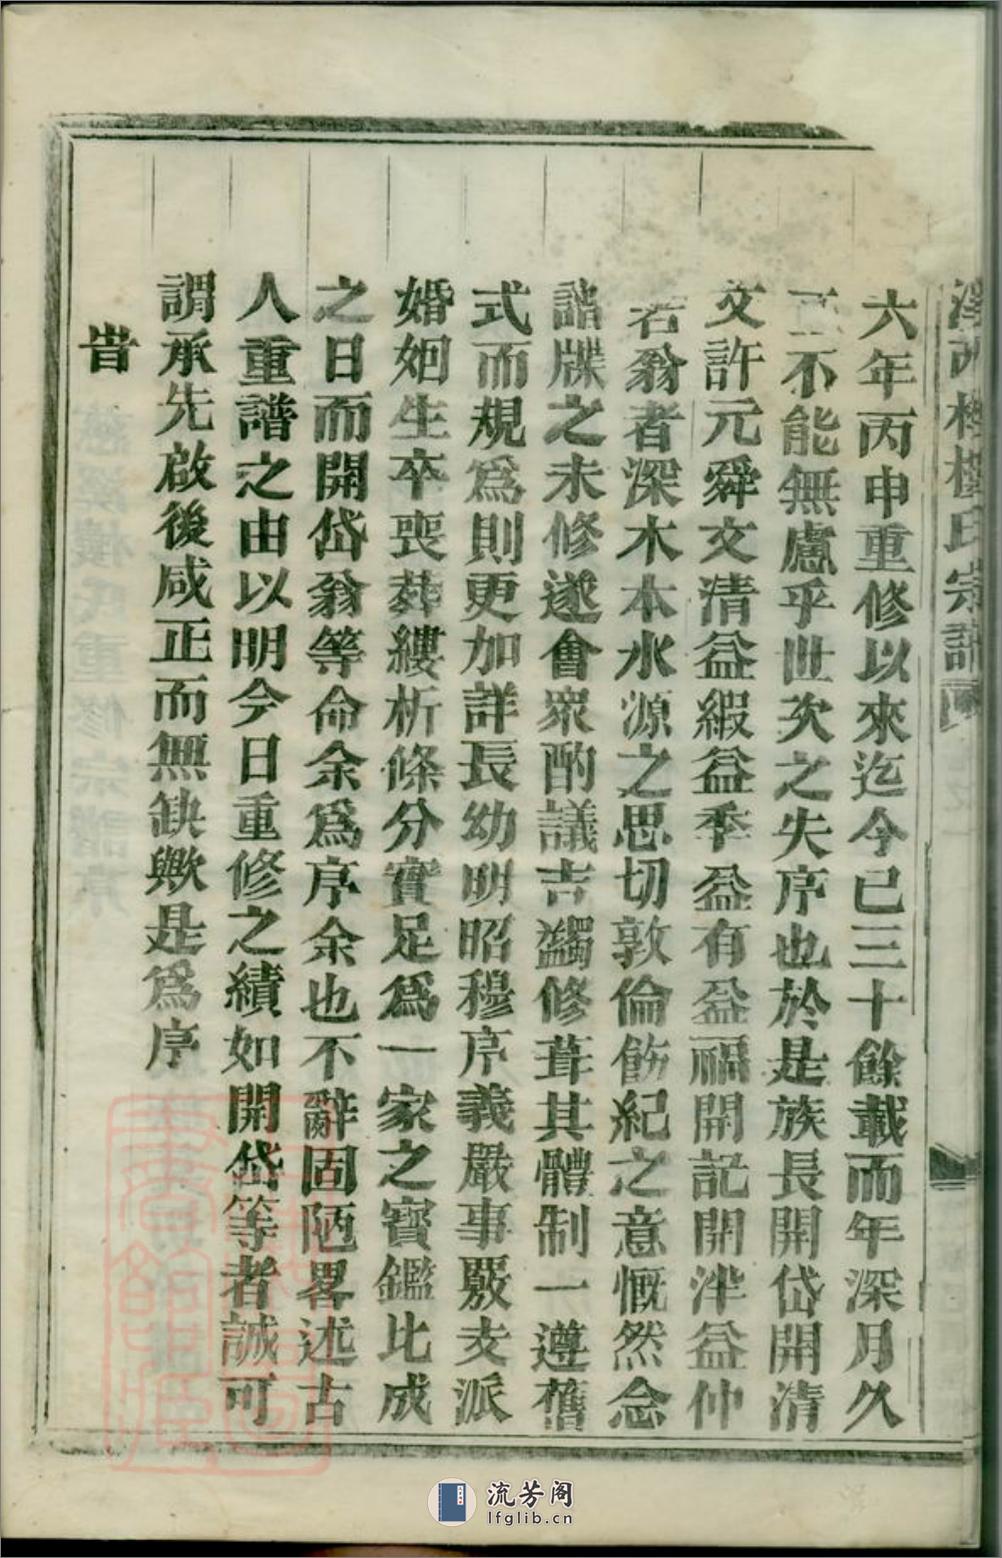 六年丙申重修以來迄今已三十餘載而年深月久
不能無慮乎世次之失序也於是族長開岱開清
文許元舜文清益緞益季益有益福開記開津益仲
若翁者深木本水源之思切敦倫飭紀之意慨然念
譜牒之未修遂會衆酌議吉蠲修葺其體制一遵舊
式而規爲則更加詳長幼明昭穆序義嚴事覈支派
婚姻生卒喪葬縷析條分實足爲一家之寶鑑比成
之日而開岱翁等命余爲序余也不辭固陋畧述古
人重譜之由以明今日重修之績如開岱等者誠可
謂承先啟後咸正而無缺歟是爲序
旹
流芳阁
lfglib.cn